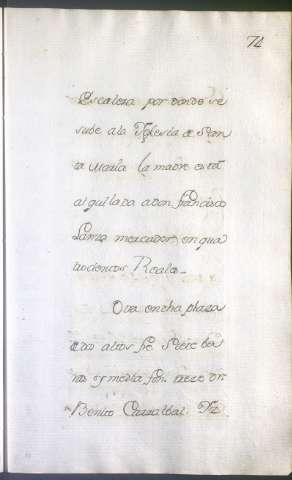 74
Escalera por donde se
sube ala Iglesia de San
ta Maria la madre está
alquilada a don francisco
Lanza mercader, en qua
trocientos Reales
Otra en cha plaza
de dos altos fe. Siete ba
ras y media fon. trece Dn.
Benito Carvalbal